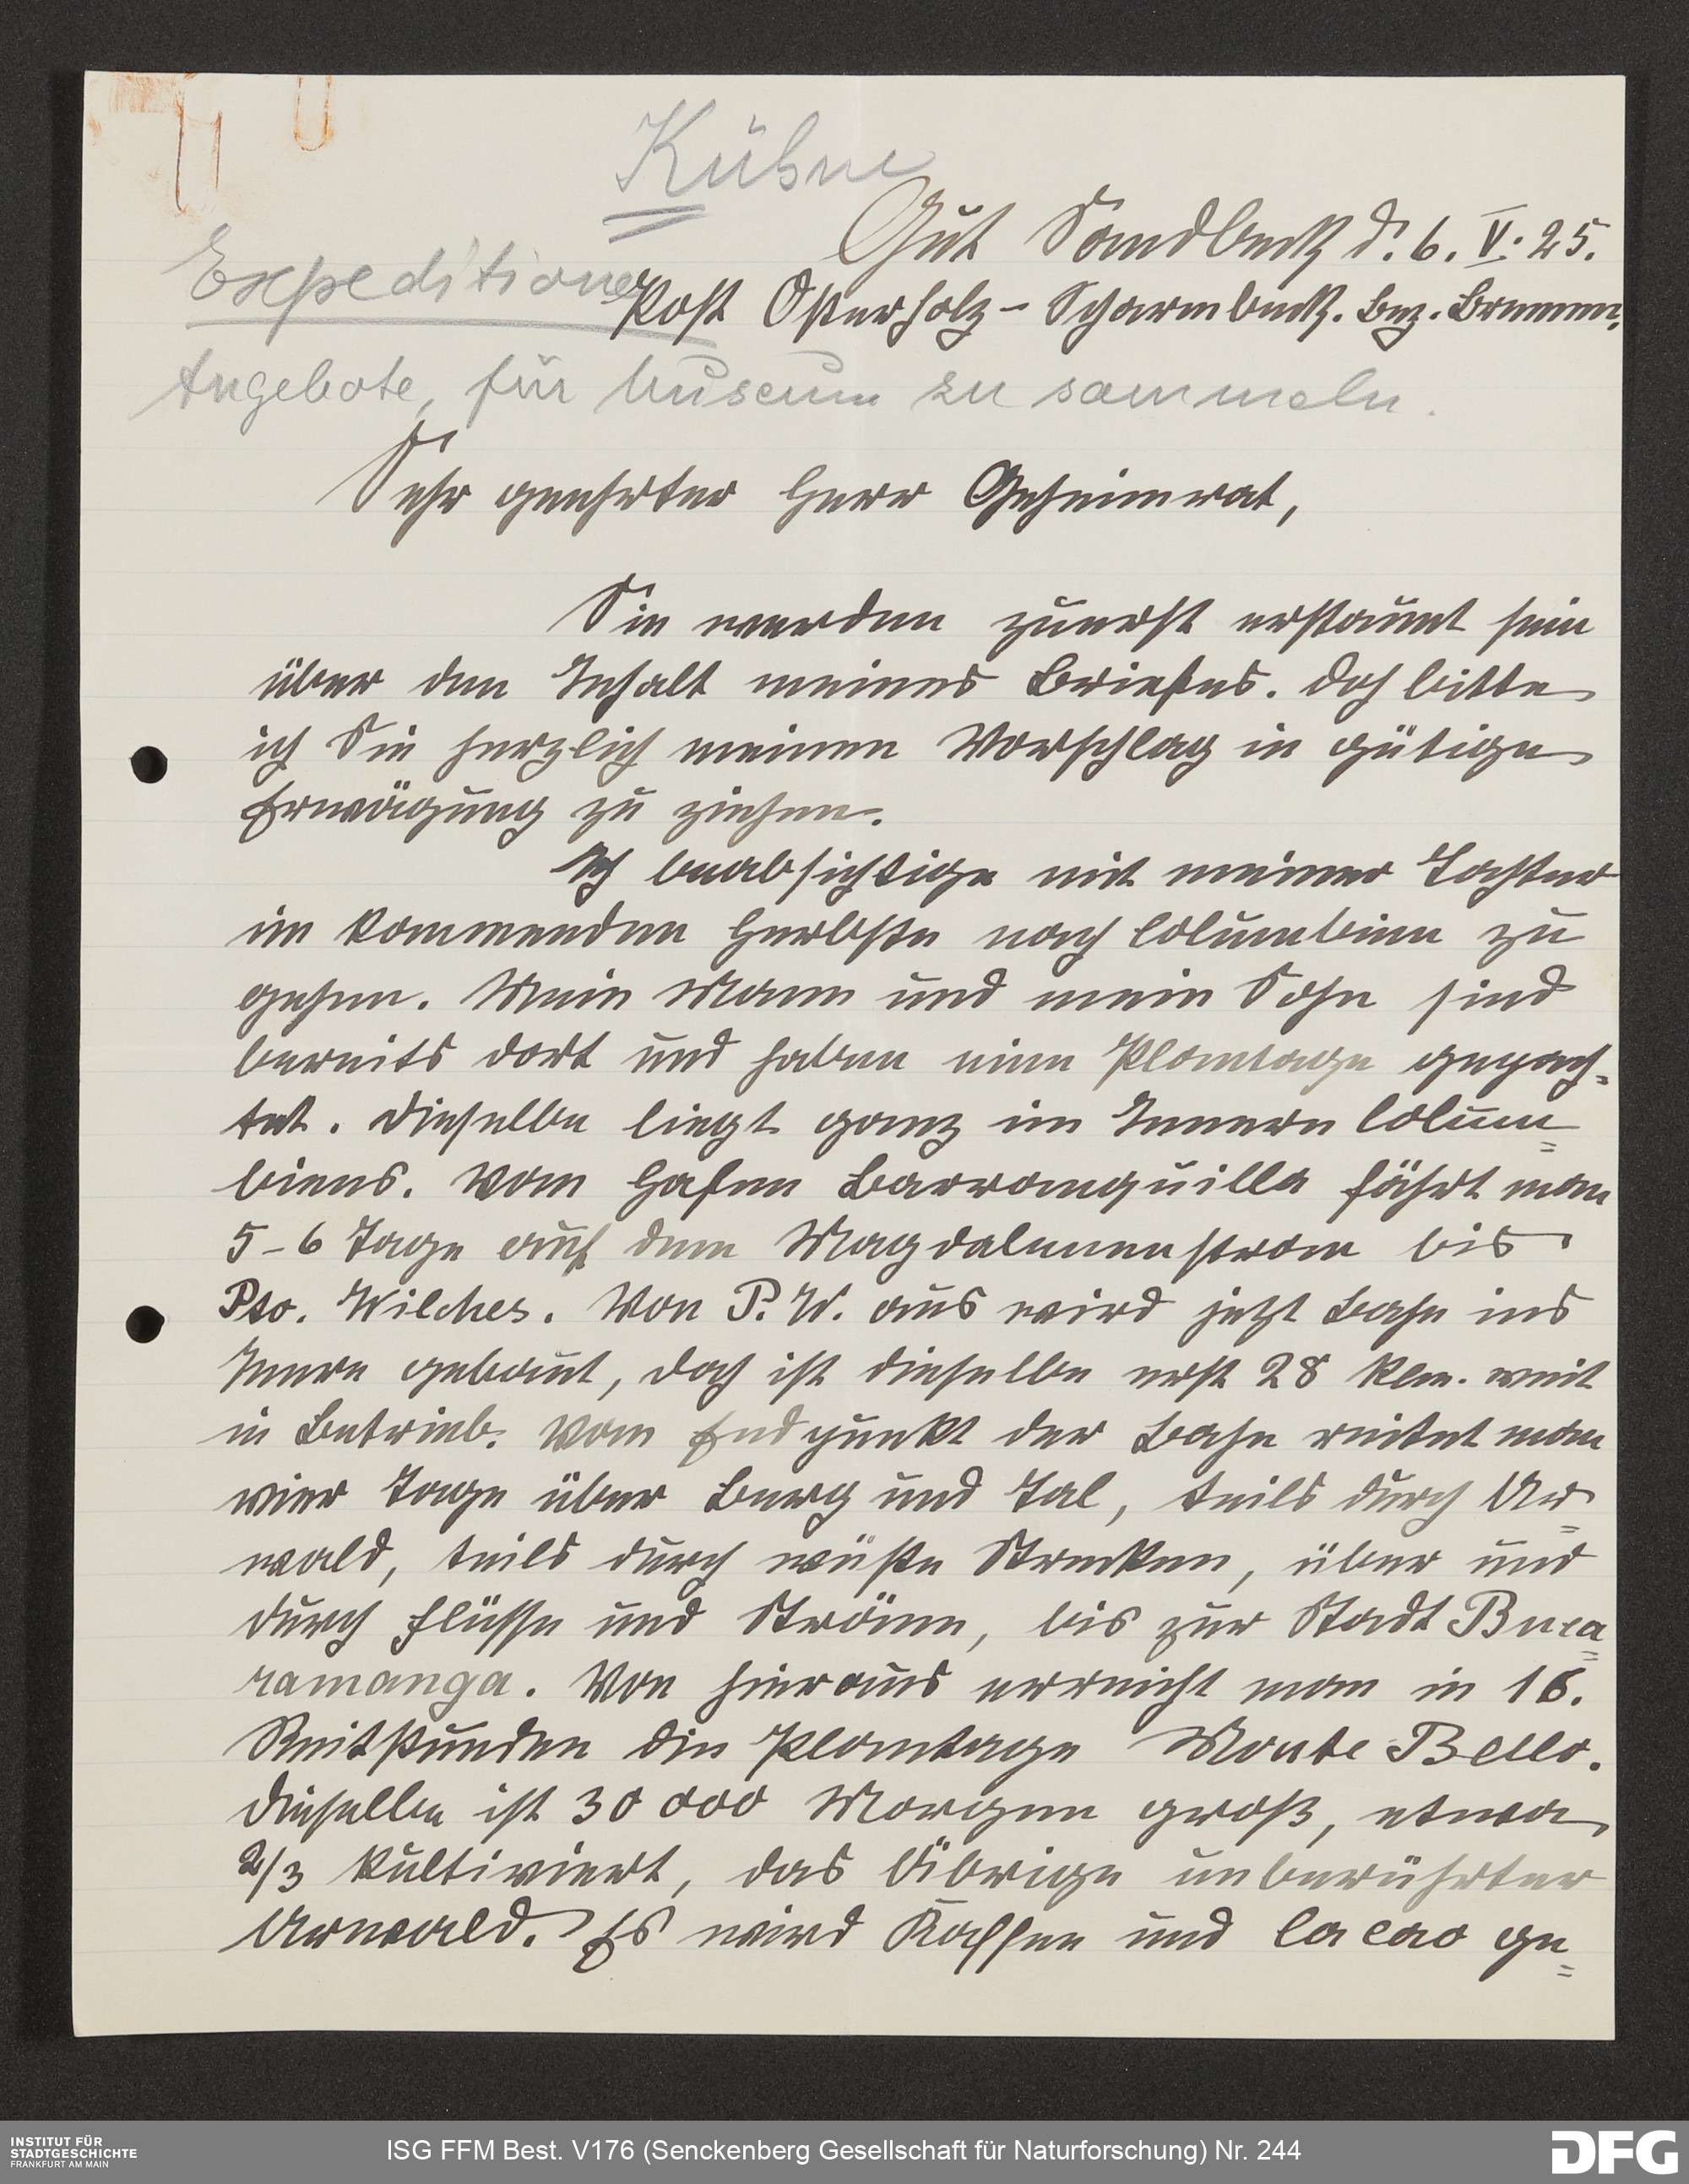 Kühne
Gut Sandbeck d. 6. V. 25.
Expeditionen
Post Osterholz-Scharmbeck. Bez. Bremen.
Angebote, für Museum zu sammeln.
Sehr geehrter Herr Geheimrat,
Sie werden zuerst erstaunt sein
über den Inhalt meines Briefes. Doch bitte
ich Sie herzlich meinen Vorschlag in gütige
Erwägung zu ziehen.
Ich beabsichtige mit meiner Tochter
im kommenden Herbste nach Columbien zu
gehen. Mein Mann und mein Sohn sind
bereits dort und haben eine Plantage gepach-
tet. Dieselbe liegt ganz im Innern Colum=
biens. Vom Hafen Barranquilla fährt man
5-6 Tage auf dem Magdalenenstrom bis
Pto. Wilches. Von P. W. aus wird jetzt Bahn ins
Innere gebaut, doch ist dieselbe erst 28 klm. weit
in Betrieb. Vom Endpunkt der Bahn reitet man
vier Tage über Berg und Tal, teils durch Ur=
wald, teils durch wüste Strecken, über und
durch Flüsse und Ströme, bis zur Stadt Buca=
ramanga. Von hier aus erreicht man in 16.
Reitstunden die Plantage Monte Bello.
Dieselbe ist 30 000 Morgen groß, etwa
2/3 kultiviert, das Übrige unberührter
Urwald. Es wird Kaffee und Cacao ge=
INSTITUT FÜR
STADTGESCHICHTE
FRANKFURT AM MAIN
ISG FFM Best. V176 (Senckenberg Gesellschaft für Naturforschung) Nr. 244
DFG